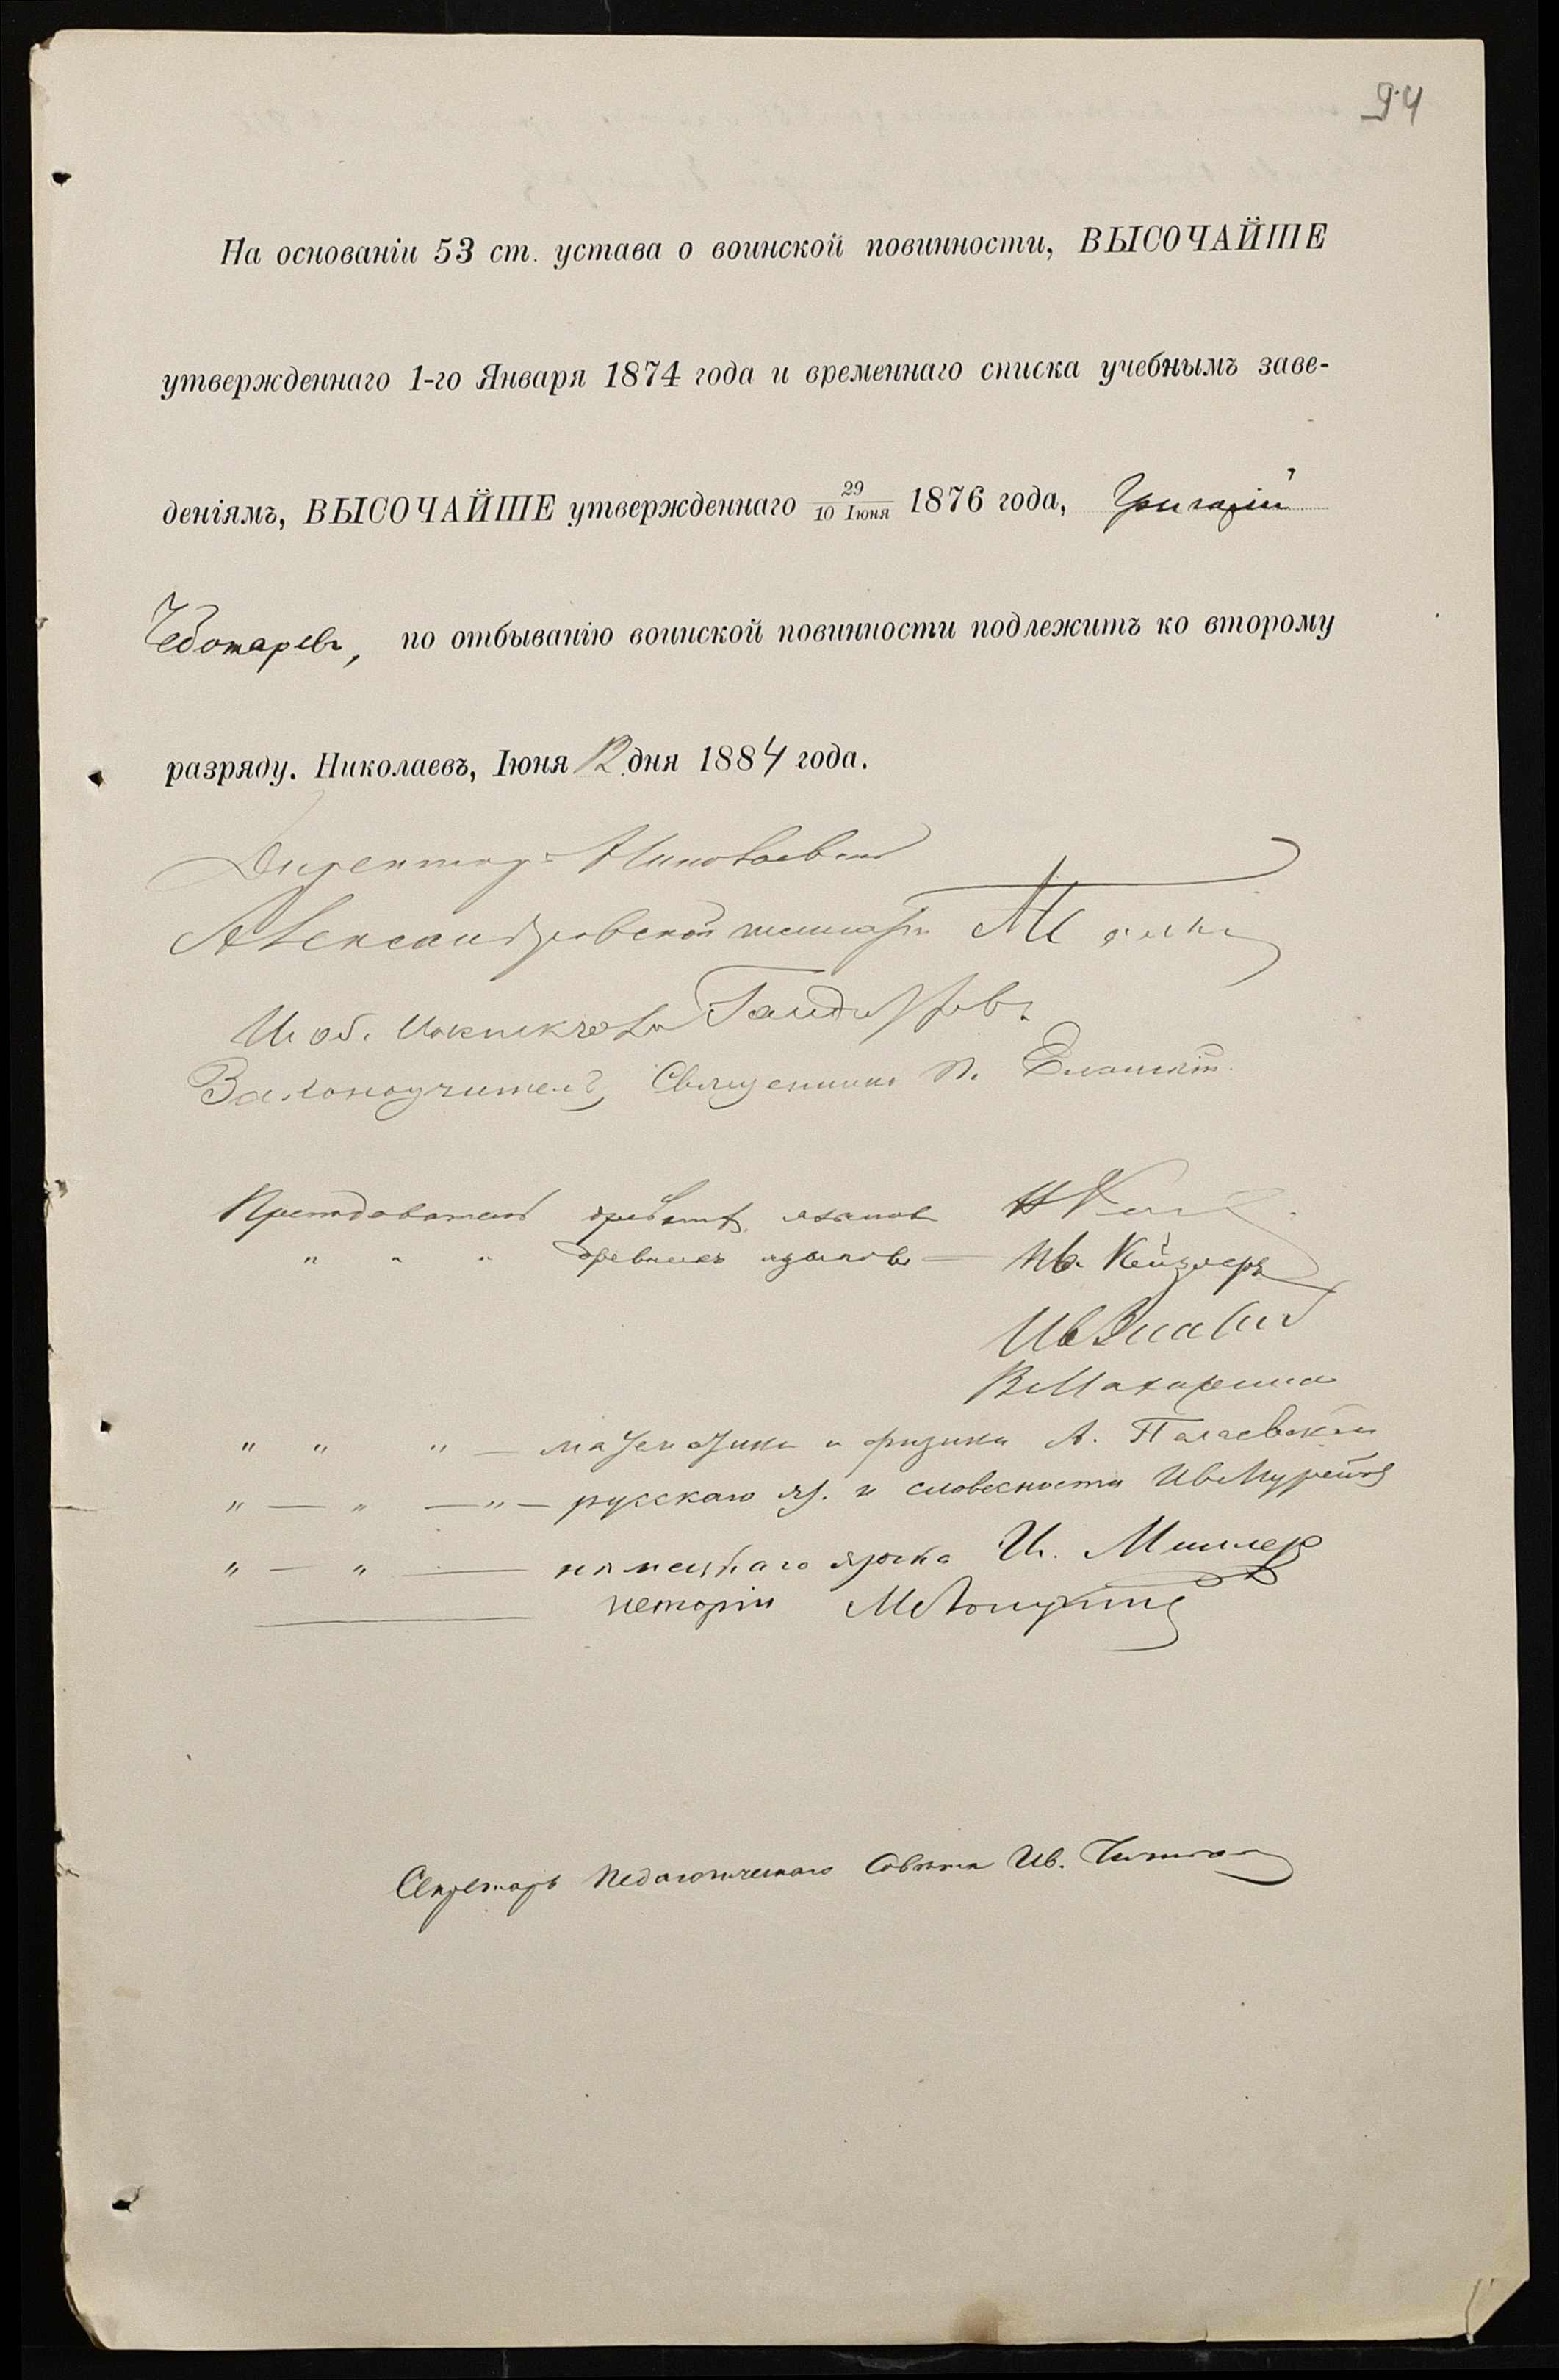 94
На основаніи 53 ст. устава о воинской повинности, ВЫСОЧАЙШЕ
утвержденнаго 1-го Января 1874 года и временнаго списка учебнымъ заве-
деніямъ, ВЫСОЧАЙШЕ утвержденнаго 29/10 Іюня 1876 года, Григорій
Чеботаревъ, по отбыванію воинской повинности подлежитъ ко второму
разряду. Николаевъ, Іюня 12 дня 1884 года.
Директоръ Николаевской
Александровской гимназіи
И. об. Инспектора
Законоучитель, Священникъ
Преподаватель древнихъ языковъ
" " " древнихъ языковъ — Ив. Кейзлеръ
" " " — математики и физики А.
" — " — " — русскаго яз. и словесности
" — " — нѣмецкаго языка И. Миллеръ
исторіи
Секретарь Педагогическаго Совѣта Ив.